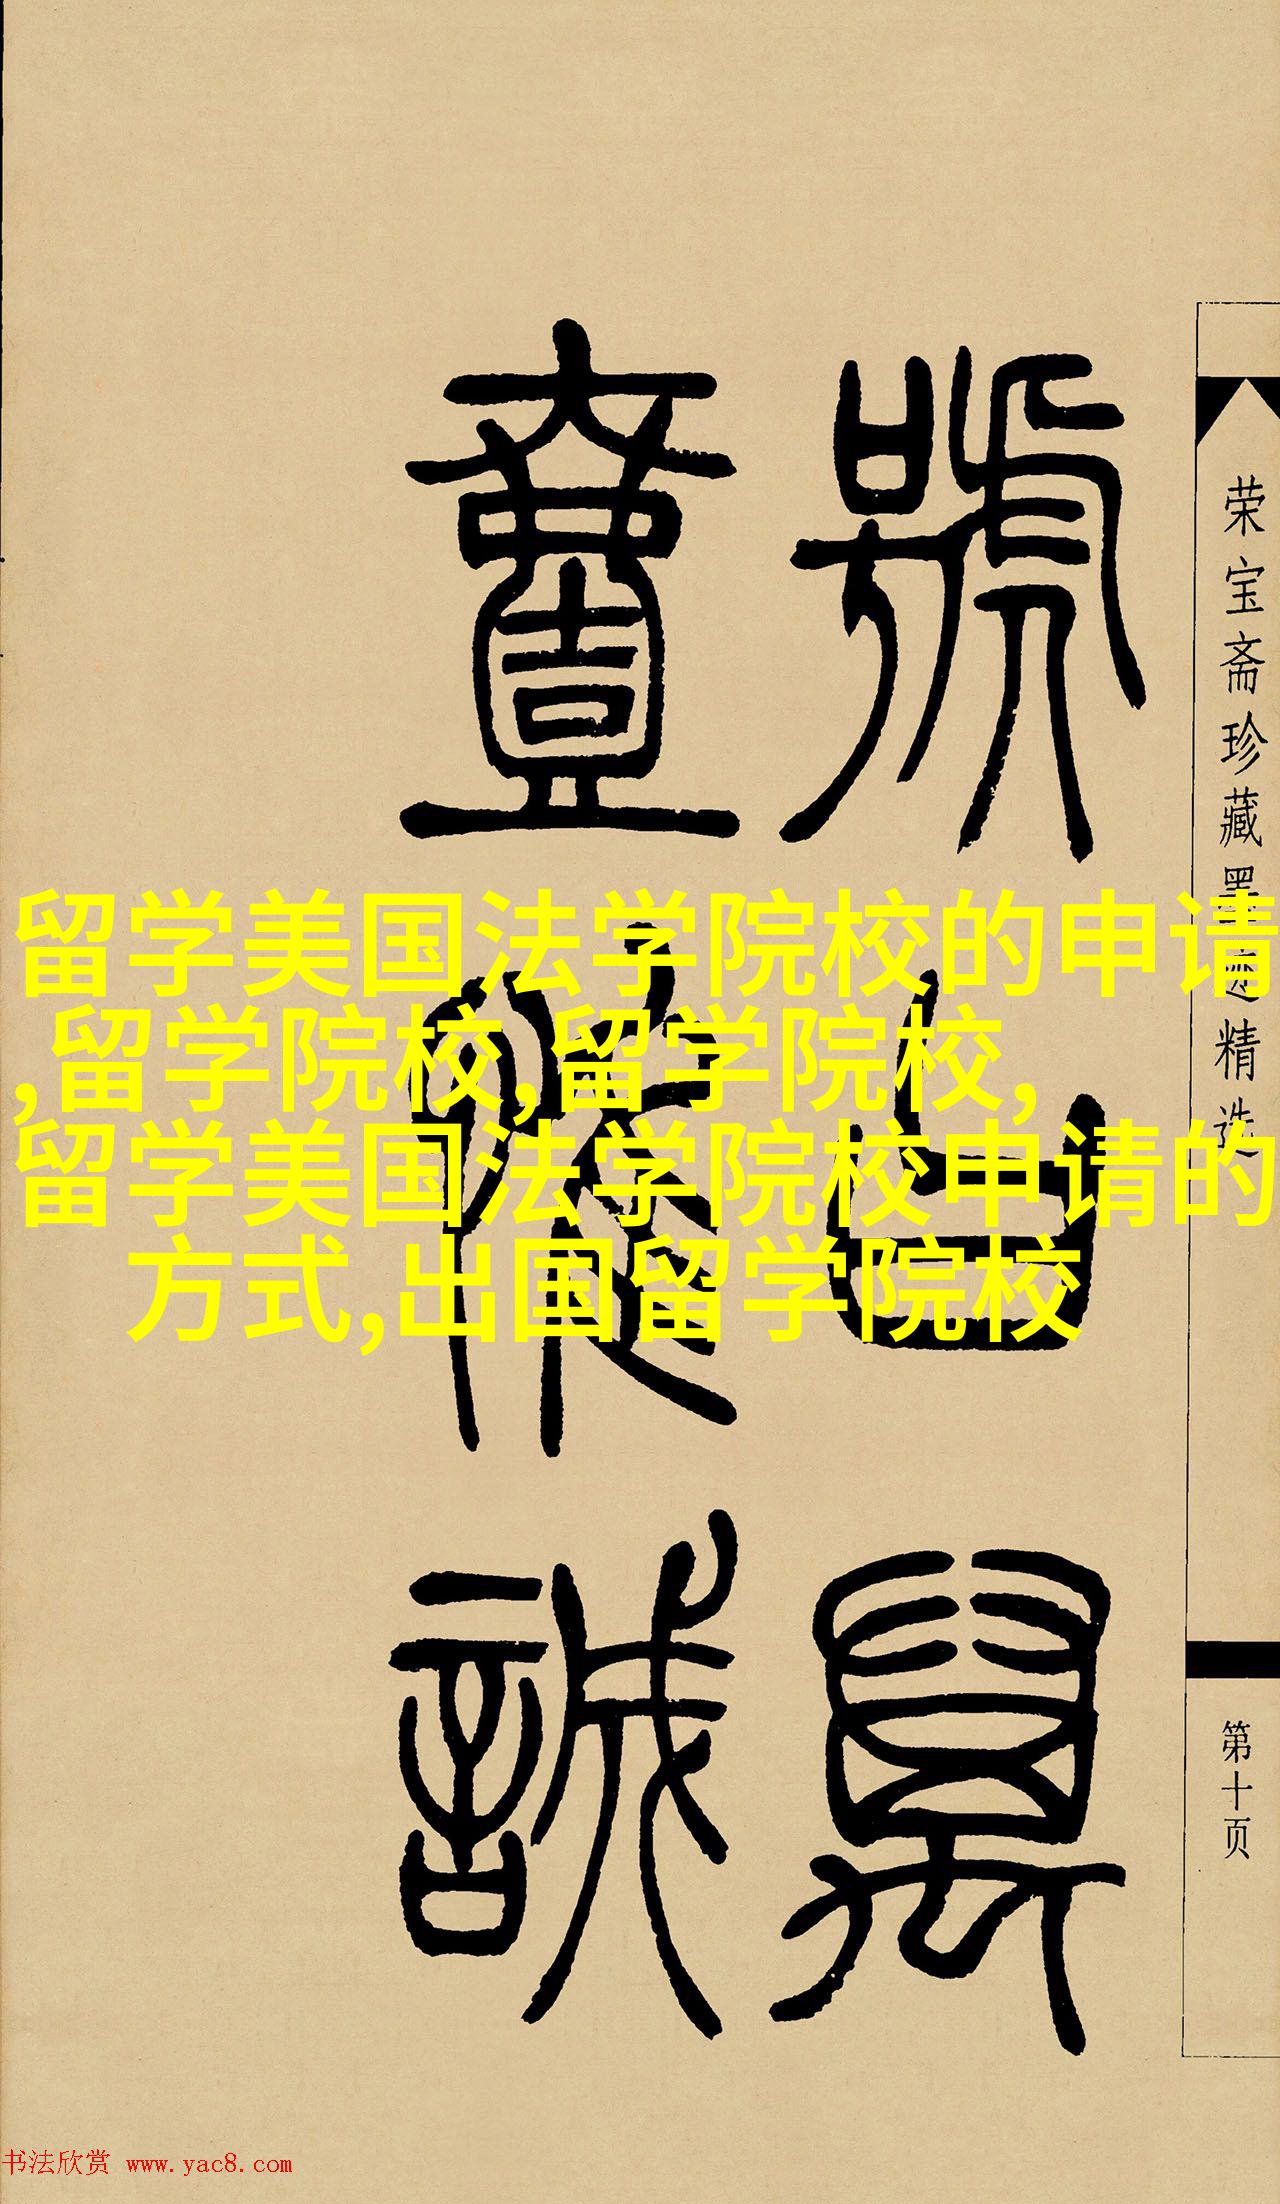 留学美国法学院校的申请
,留学院校,留学院校,
留学美国法学院校申请的
方式,出国留学院校
荣宝斋珍藏墨迹精选
第十页
號山
壹
书法欣赏 www.yac8.com